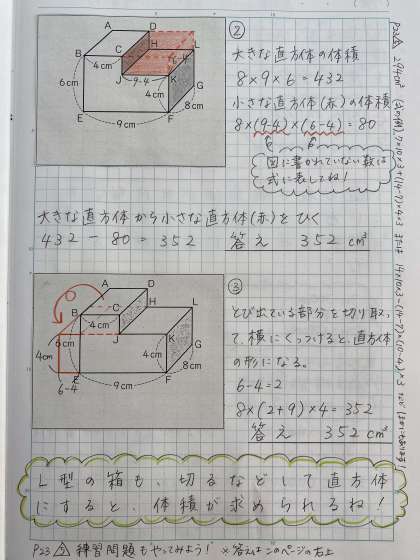 ②
大きな直方体の体積
8×9×6=432
小さな直方体(赤)の体積
8×(9-4)×(6-4)=80
図に書かれていない数は
式に表してね!
A
D
B
C
H
L
4cm
6-4
6cm
J
9-4
K
4cm
G
8cm
E
F
9cm
大きな直方体から小さな直方体(赤)をひく
432-80=352
答え 352cm³
③
とび出ている部分を切り取っ
て、横にくっつけると、直方体
の形になる。
6-4=2
8×(2+9)×4=352
答え 352cm³
A
D
B
C
H
L
4cm
J
K
6cm
4cm
4cm
G
8cm
6-4
E
F
9cm
L型の箱も、切るなどして直方体
にすると、体積が求められるね!
P23 練習問題もやってみよう! ※答えはこのページの右上
P23 294cm³ (式の例)7×10×3+(14-7)×4×3 または 14×10×3-(14-7)×(10-4)×3 など